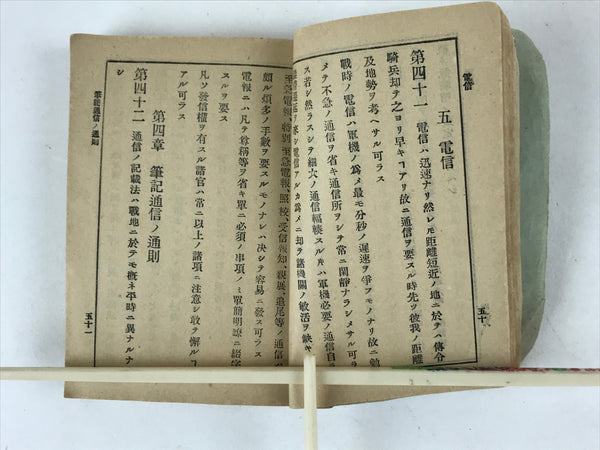 電信
五 電信
第四十一 電信ハ迅速ナリ然レモ距離短近ノ地ニ於テハ傳令
騎兵却テ之ヨリ早キコアリ故ニ通信ヲ要スル時先ツ彼我ノ距離
及地勢ヲ考ヘサル可ラス
戰時ノ電信ハ軍機ノ爲メ最モ分秒ノ遲速ヲ爭フモノナリ故ニ勉
メテ不急ノ通信ヲ省キ通信所ヲシテ常ニ閑靜ナラシメサル可ラ
ス若シ然ラスシテ細大ノ通信輻輳スルハ軍機必要ノ通信自ラ
ニ却テ諸機關ノ敏活ヲ缺キ
五十
至急電報、特別至急電報、照校、受信報知、親展、追尾等ノ通信ハ
頗ル煩多ノ手數ヲ要スルモノナレハ决シテ容易ニ發ス可ラス
電報ニハ凡テ尊稱等ヲ省キ單ニ必須ノ事項ノミ單簡明瞭ニ綴字
スルヲ要ス
凡ソ發信權ヲ有スル諸官ハ常ニ以上ノ諸項ニ注意シ敢テ懈ルコ
アル可ラス
第四章 筆記通信ノ通則
第四十二 通信ノ記載法ハ戰地ニ於テモ概ネ平時ニ異ナルナ
シ
筆記通信ノ通則
五十一